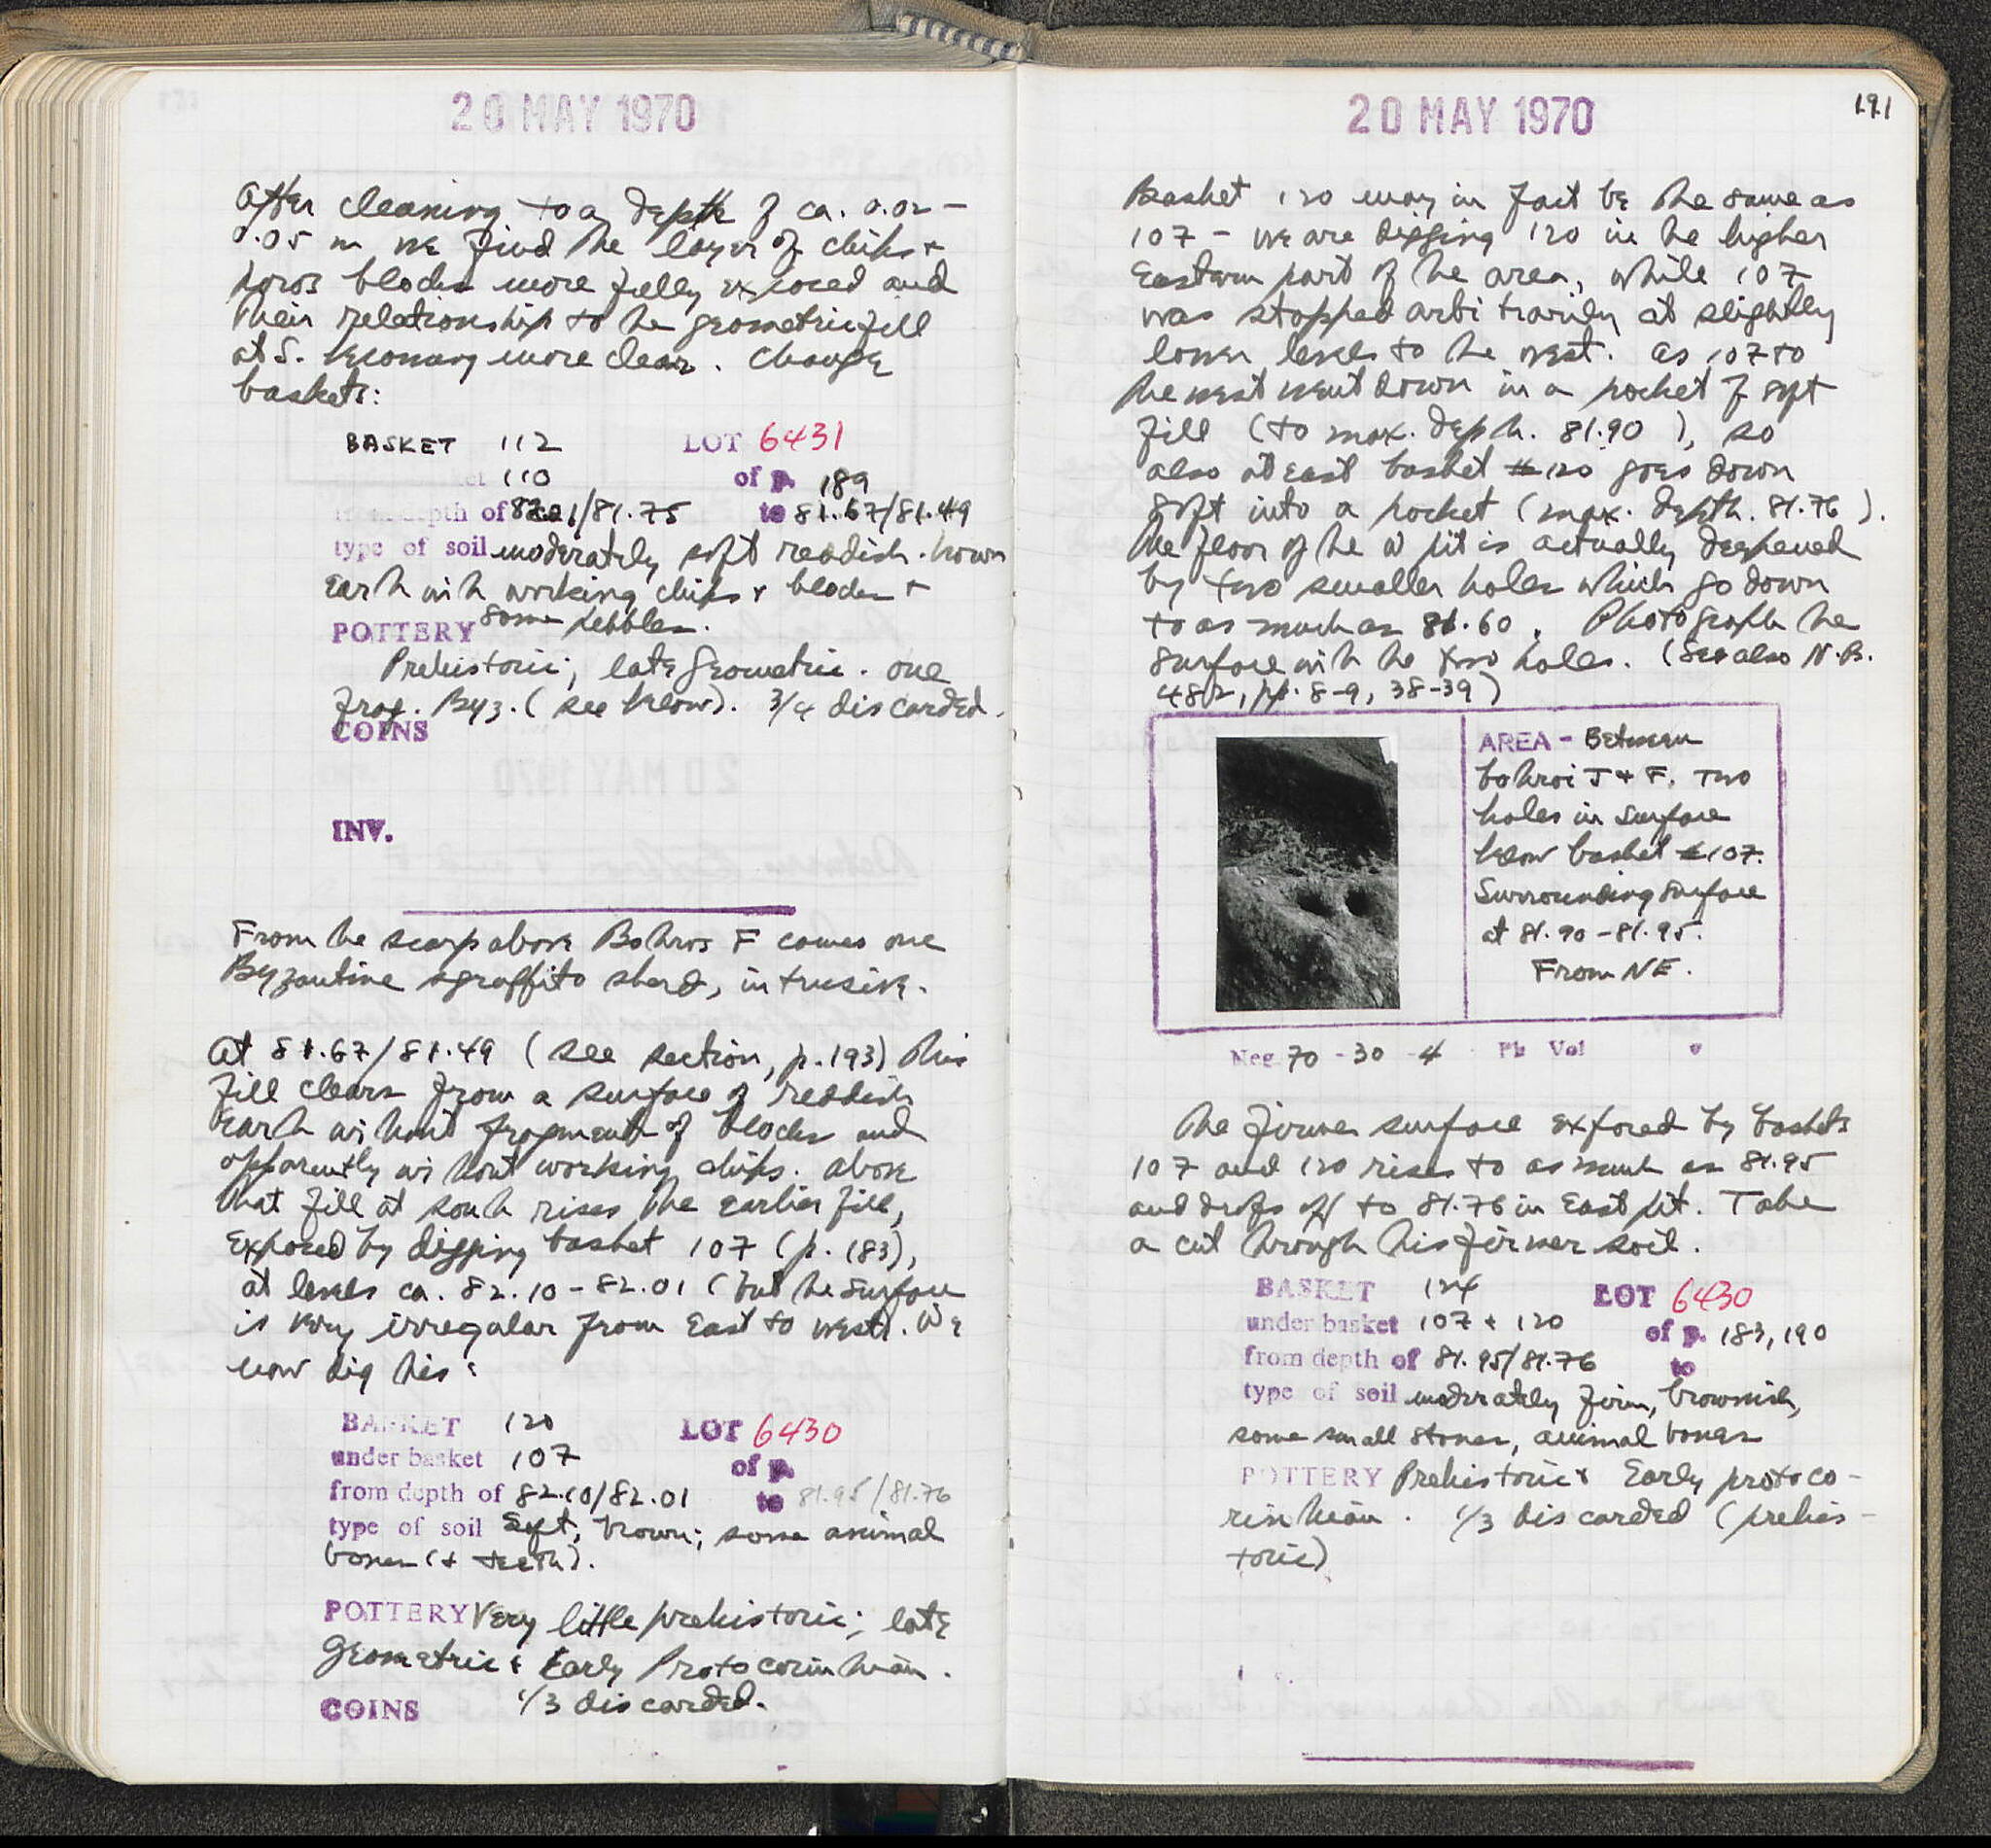 20 MAY 1970
After cleaning to a depth of ca. 0.02 -
0.05 m we find the layer of chips +
poros blocks more fully exposed and
their relationship to the geometric fill
at S. becoming more clear. Change
baskets:
BASKET 112 LOT 6431
110 of p. 189
depth of 82.01/81.75 to 81.67/81.49
type of soil moderately soft reddish-brown
earth with working chips + blocks +
some pebbles.
POTTERY
Prehistoric; late geometric. one
frag. Byz. (see below). 3/4 discarded.
COINS
INV.
From the scarp above Bothros F comes one
Byzantine sgraffito sherd, intrusive.
At 81.67/81.49 (see section, p.193) this
fill clears from a surface of reddish
earth without fragments of blocks and
apparently without working chips. Above
that fill at south rises the earlier fill,
exposed by digging basket 107 (p. 183),
at levels ca. 82.10-82.01 (but the surface
is very irregular from east to west). We
now dig this:
BASKET 120 LOT 6430
under basket 107 of p.
from depth of 82.10/82.01 to 81.95/81.76
type of soil Soft, brown; some animal
bones (+ teeth).
POTTERY Very little prehistoric; late
Geometric & Early Protocorinthian.
1/3 discarded.
COINS
20 MAY 1970 191
Basket 120 may in fact be the same as
107 - we are digging 120 in the higher
Eastern part of the area, while 107
was stopped arbitrarily at slightly
lower levels to the west. As 107 to
the west went down in a pocket of soft
fill (to max. depth. 81.90), so
also at east basket 120 goes down
soft into a pocket (max. depth. 81.76).
The floor of the W pit is actually deepened
by two smaller holes which go down
to as much as 81.60. Photograph the
surface with the two holes. (See also N.B.
482, pp. 8-9, 38-39)
AREA - Between
bothroi J + F. Two
holes in surface
below basket 107.
Surrounding surface
at 81.90-81.95.
From NE.
Neg. 70 - 30 - 4 Pb Vol
The firmer surface exposed by baskets
107 and 120 rises to as much as 81.95
and drops off to 81.76 in East pit. Take
a cut through this firmer soil.
BASKET 124 LOT 6430
under basket 107 + 120 of p. 183, 190
from depth of 81.95/81.76 to
type of soil moderately firm, brownish,
some small stones, animal bones
POTTERY Prehistoric & Early protoco-
rinthian. 1/3 discarded (prehis-
toric)